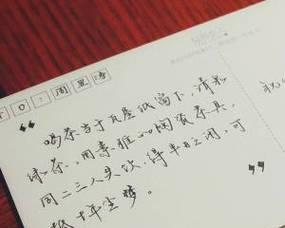 TO:周
喝茶当于瓦屋纸窗下,清泉
绿茶,用素雅的陶瓷茶具,
同二三人共饮,得半日之闲,可
抵十年尘梦。
祝